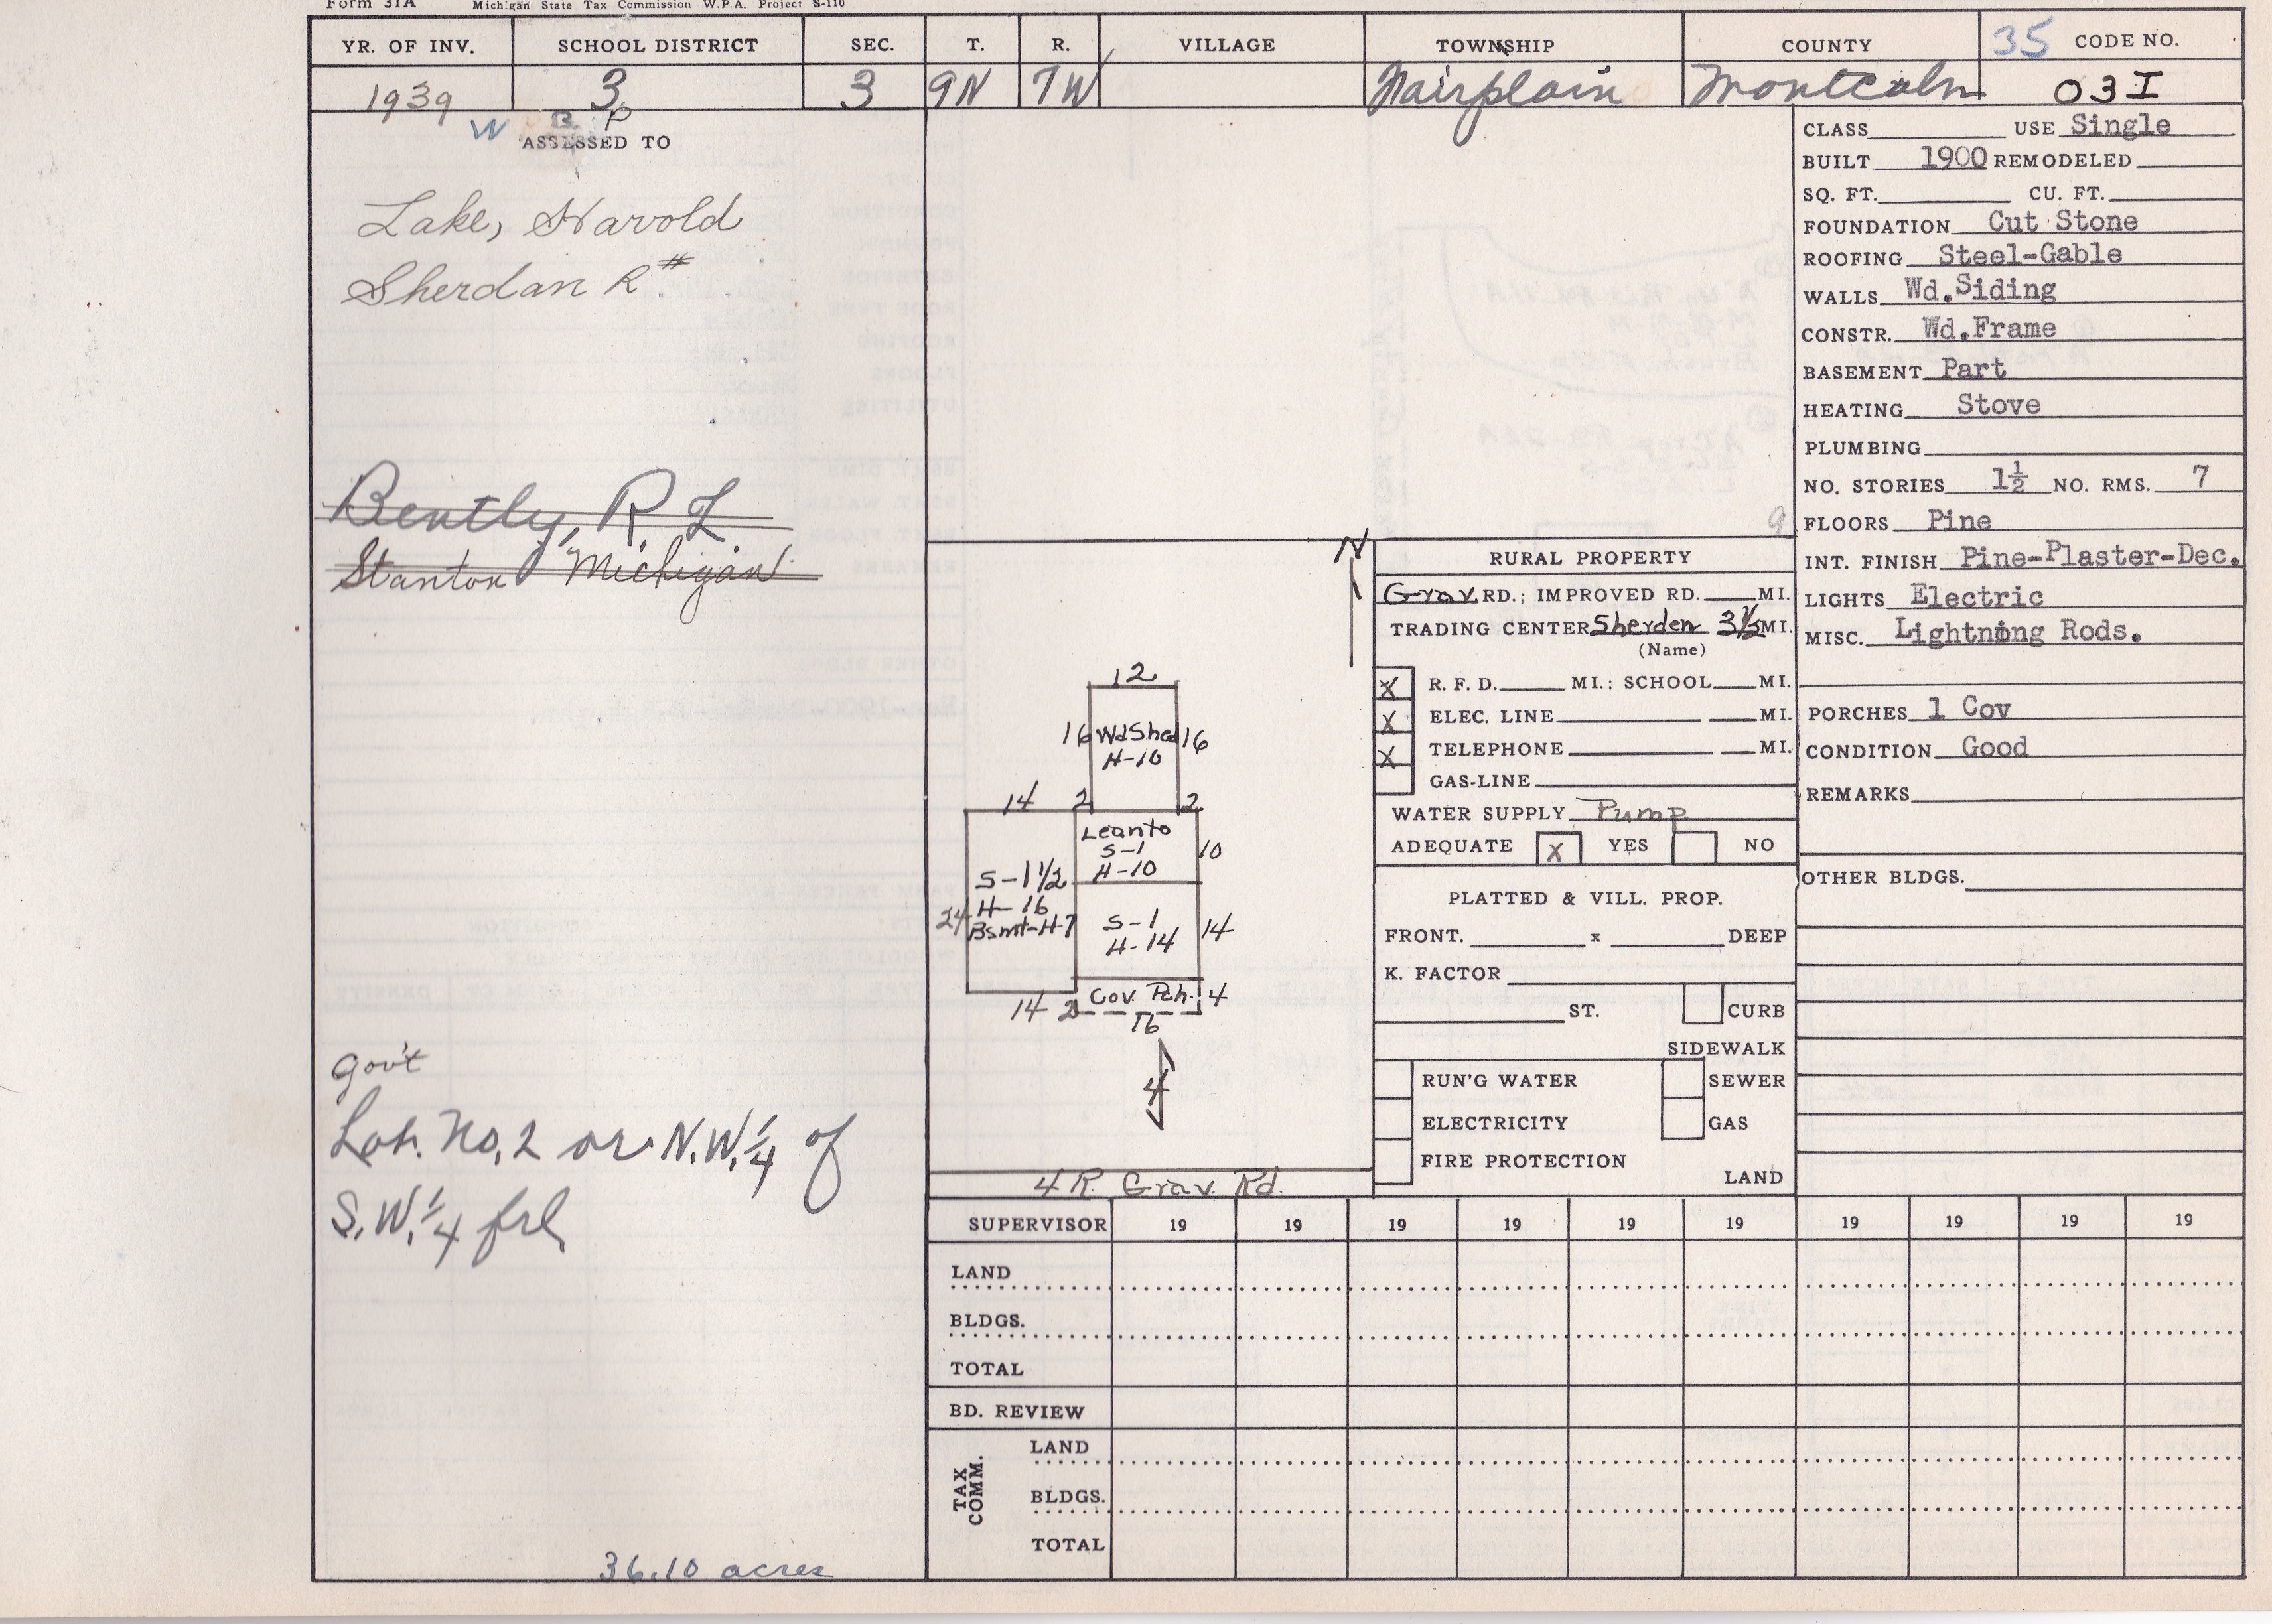 Form 31A Michigan State Tax Commission W.P.A. Project S-110
YR. OF INV. SCHOOL DISTRICT SEC. T. R. VILLAGE TOWNSHIP COUNTY 35 CODE NO.
1939 3 3 9N 7W Fairplain Montcalm 03I
W B. P
ASSESSED TO
Lake, Harold
Sherdan R#
Bently, R. L
Stanton Michigan
Gov't
Lot. No. 2 or N.W. 1/4 of
S.W. 1/4 frl
36.10 acres
9
N
12
16 WdShed 16
H-10
14 2 2
Leanto
S-1 10
H-10
S-1 1/2
H-16
24 Bsmt-H7
S-1 14
H-14
Cov. Pch. 4
14 2
16
4
4 R Grav. Rd.
CLASS USE Single
BUILT 1900 REMODELED
SQ. FT. CU. FT.
FOUNDATION Cut Stone
ROOFING Steel-Gable
WALLS Wd.Siding
CONSTR. Wd.Frame
BASEMENT Part
HEATING Stove
PLUMBING
NO. STORIES 1½ NO. RMS. 7
FLOORS Pine
INT. FINISH Pine-Plaster-Dec.
LIGHTS Electric
MISC. Lightning Rods.
PORCHES 1 Cov
CONDITION Good
REMARKS
OTHER BLDGS.
RURAL PROPERTY
Grav. RD.; IMPROVED RD. MI.
TRADING CENTER Sherden 3 1/2 MI.
(Name)
X R. F. D. MI.; SCHOOL MI.
X ELEC. LINE MI.
X TELEPHONE MI.
GAS-LINE
WATER SUPPLY Pump
ADEQUATE X YES NO
PLATTED & VILL. PROP.
FRONT. x DEEP
K. FACTOR
ST. CURB
SIDEWALK
RUN'G WATER SEWER
ELECTRICITY GAS
FIRE PROTECTION
LAND
SUPERVISOR 19 19 19 19 19 19 19 19 19 19
LAND
BLDGS.
TOTAL
BD. REVIEW
TAX COMM.
LAND
BLDGS.
TOTAL